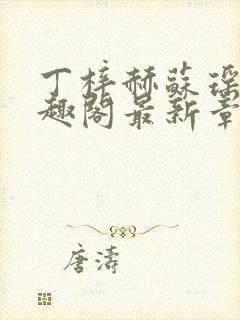 丁梓赫蘇瑤
趣閣最新章
唐濤